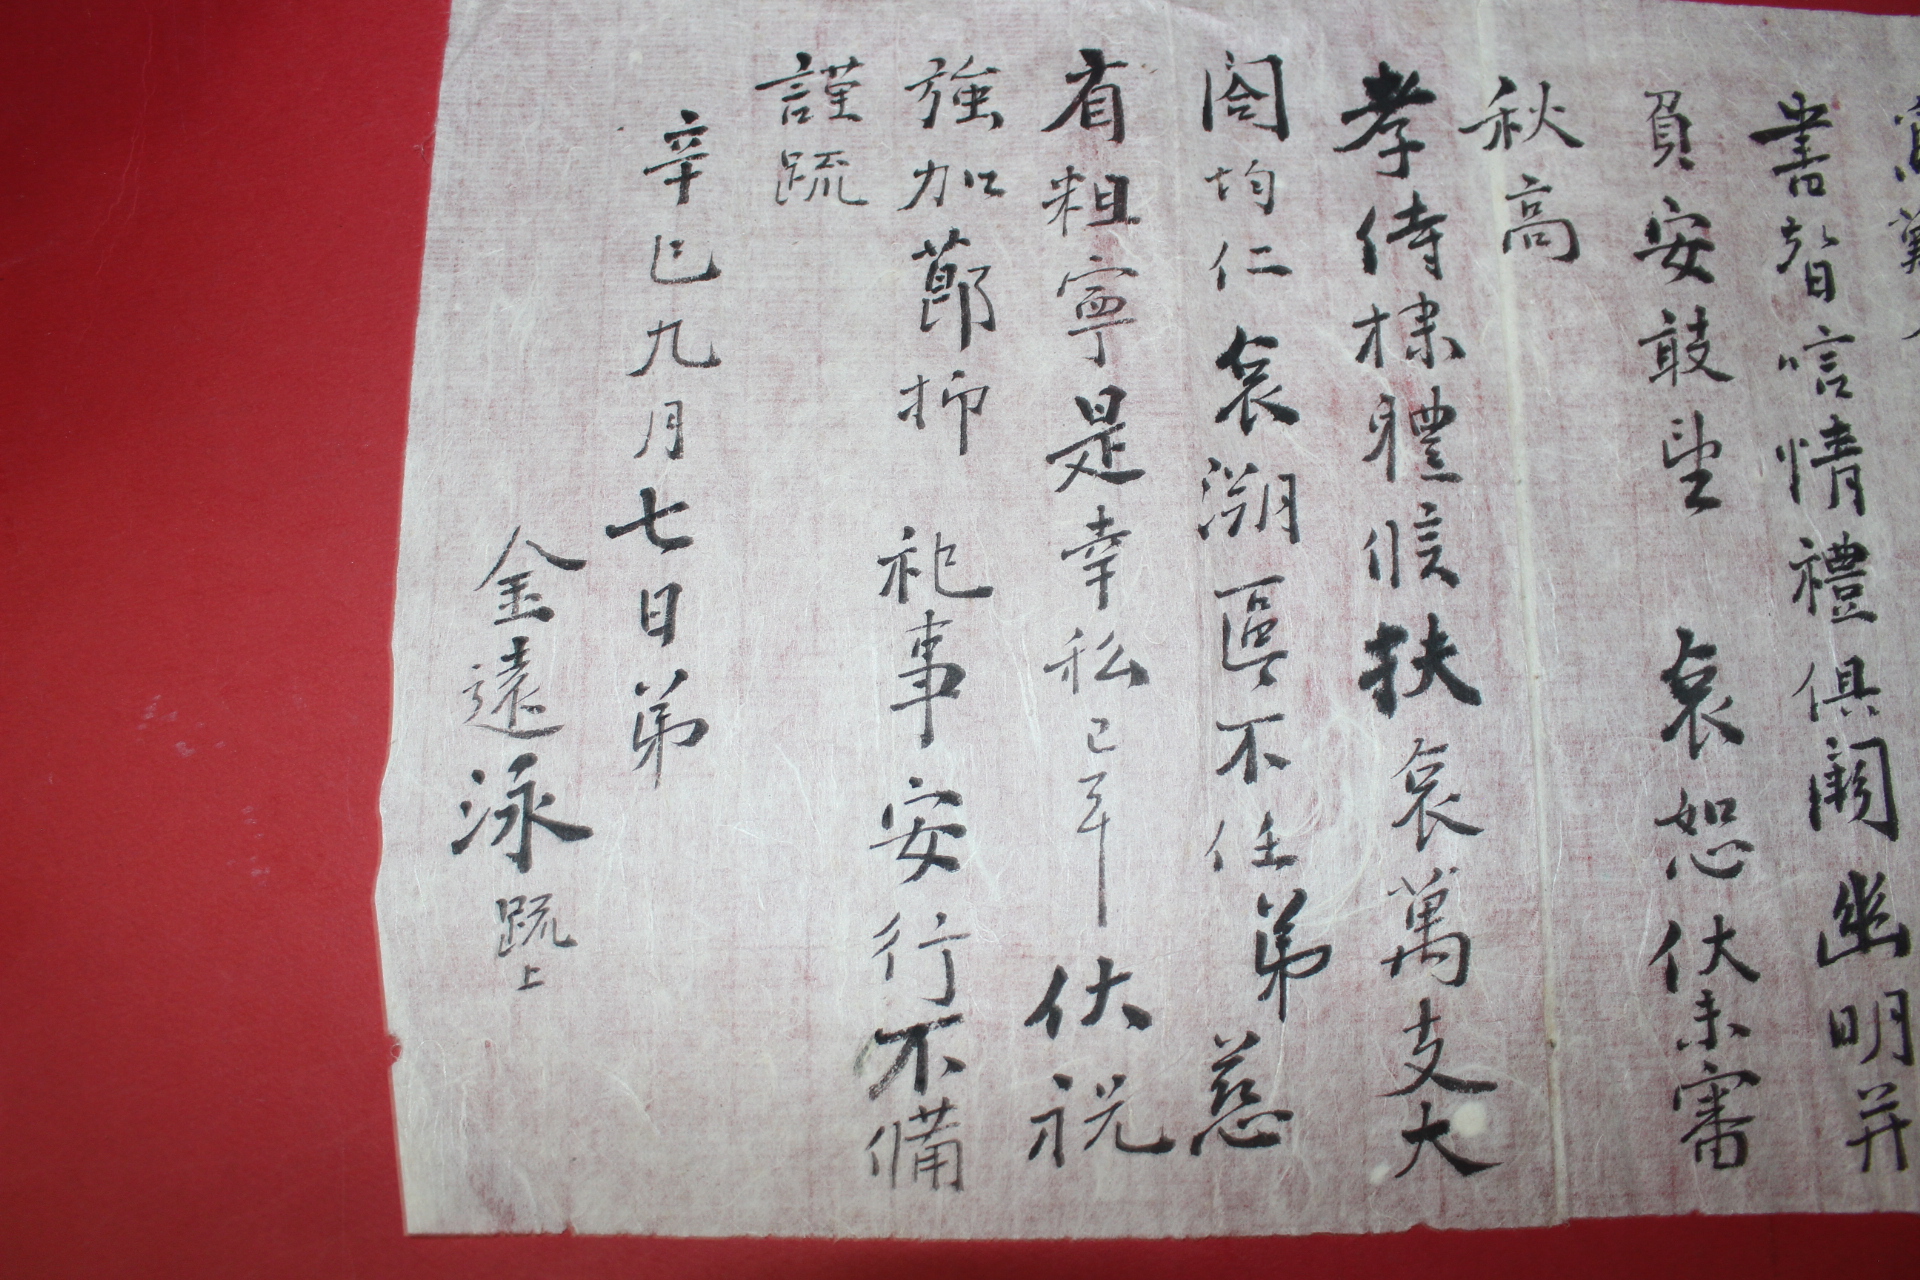 書替唁情禮俱闕幽明并
負安敢望 哀恕伏未審
秋高
孝侍棣體候扶哀萬支大
閤均仁哀溯區區不任弟慈
省粗寧是幸私已耳伏祝
強加節抑 祀事安行不備
謹疏
辛巳九月七日弟
金遠泳疏上